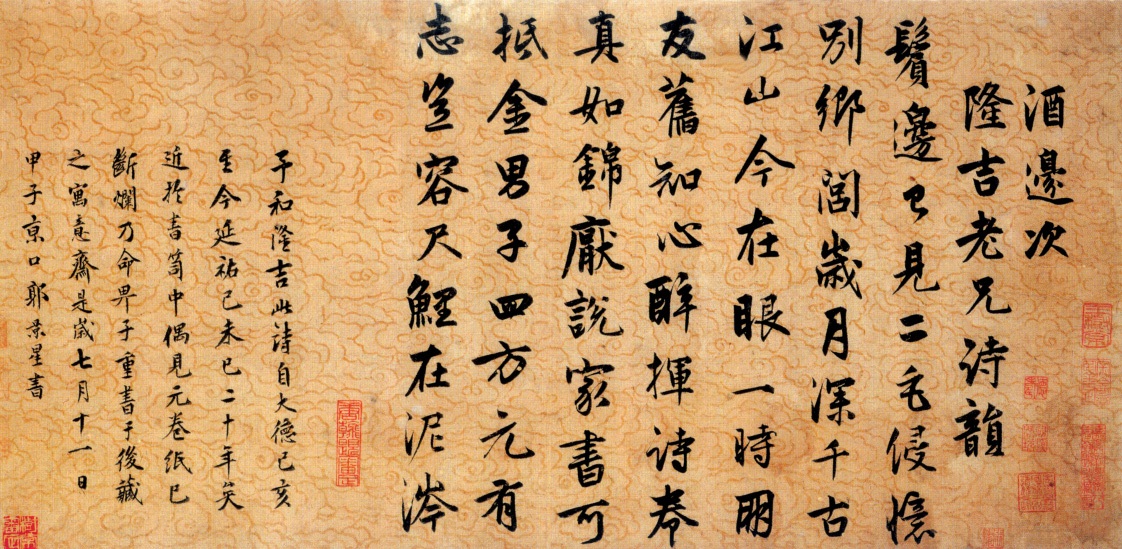 酒邊次
隆吉老兄詩韻
鬢邊已見二毛侵憶
別鄉閭歲月深千古
江山今在眼一時朋
友舊知心醉揮詩奉
真如錦厭說家書可
抵金男子四方元有
志豈容尺鯉在泥涔
予和隆吉此詩自大德己亥
至今延祐己未已二十年矣
近於書笥中偶見元卷紙已
斷爛乃命畀予重書于後藏
之寓意齋是歲七月十一日
甲子京口郭景星書